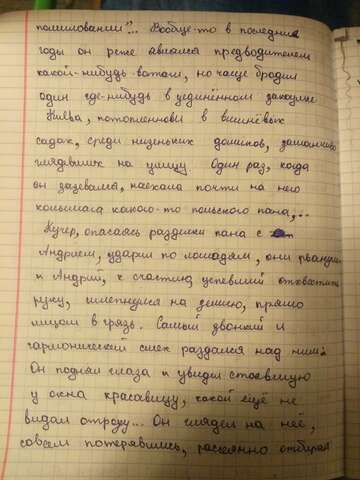 помиловании"... Вообще-то в последние
годы он реже являлся предводителем
какой-нибудь ватаги, но чаще бродил
один где-нибудь в уединённом закоулке
Киева, потопленного в вишнёвых
садах, среди низеньких домиков, заманчиво
глядевших на улицу. Один раз, когда
он зазевался, наехала почти на него
колымага какого-то польского пана,...
Кучер, опасаясь разделки пана с
Андрием, ударил по лошадям, они рванули
и Андрий, к счастию, успевший отхватить
руку, шлепнулся на землю, прямо
лицом в грязь. Самый звонкий и
гармонический смех раздался над ним.
Он поднял глаза и увидел стоявшую
у окна красавицу, какой ещё не
видал отроду... Он глядел на неё,
совсем потерявшись, рассеянно отбирая